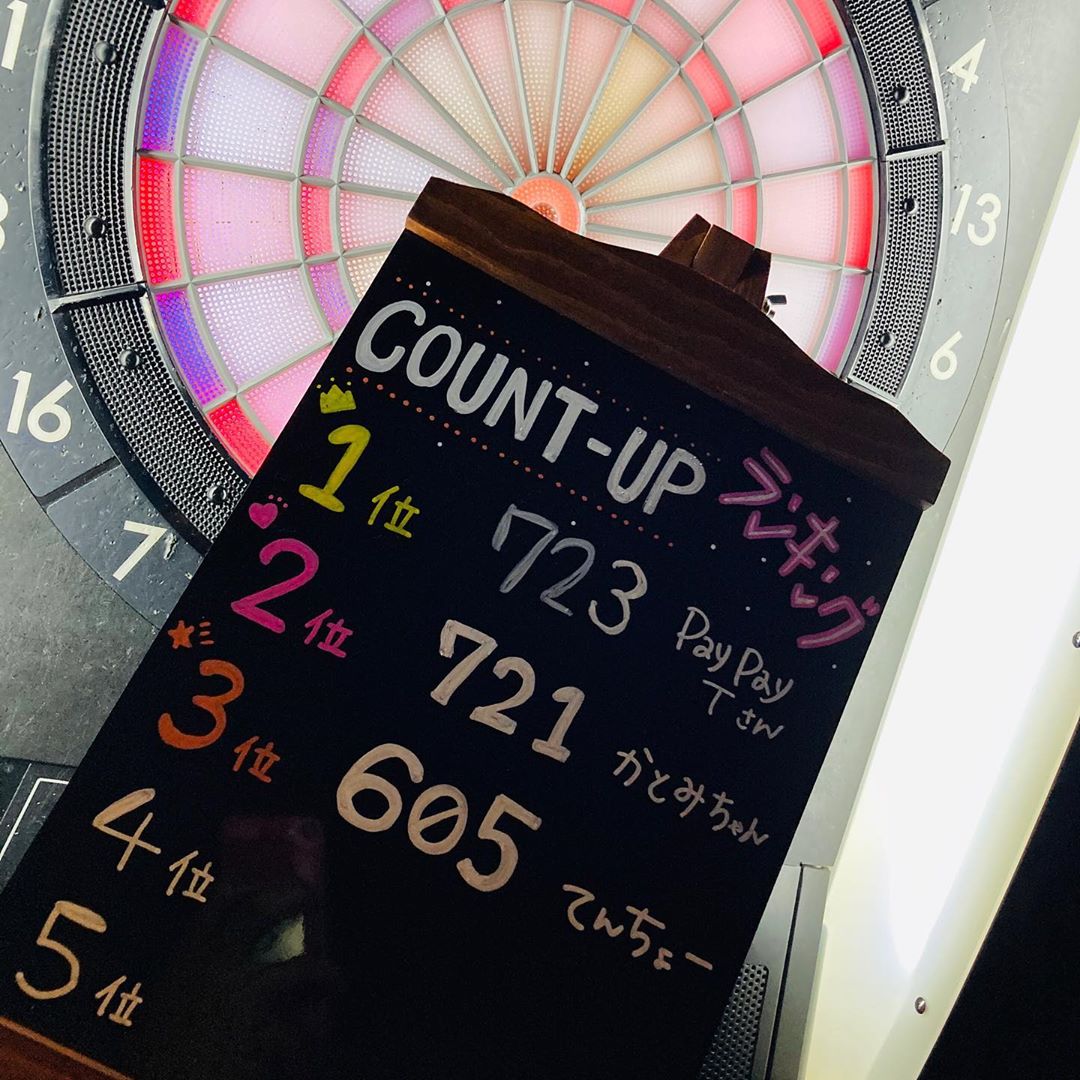 COUNT-UP ランキング
1位 723 PayPay Tさん
2位 721 かとみちゃん
3位 605 てんちょー
4位
5位
4
13
6
16
7